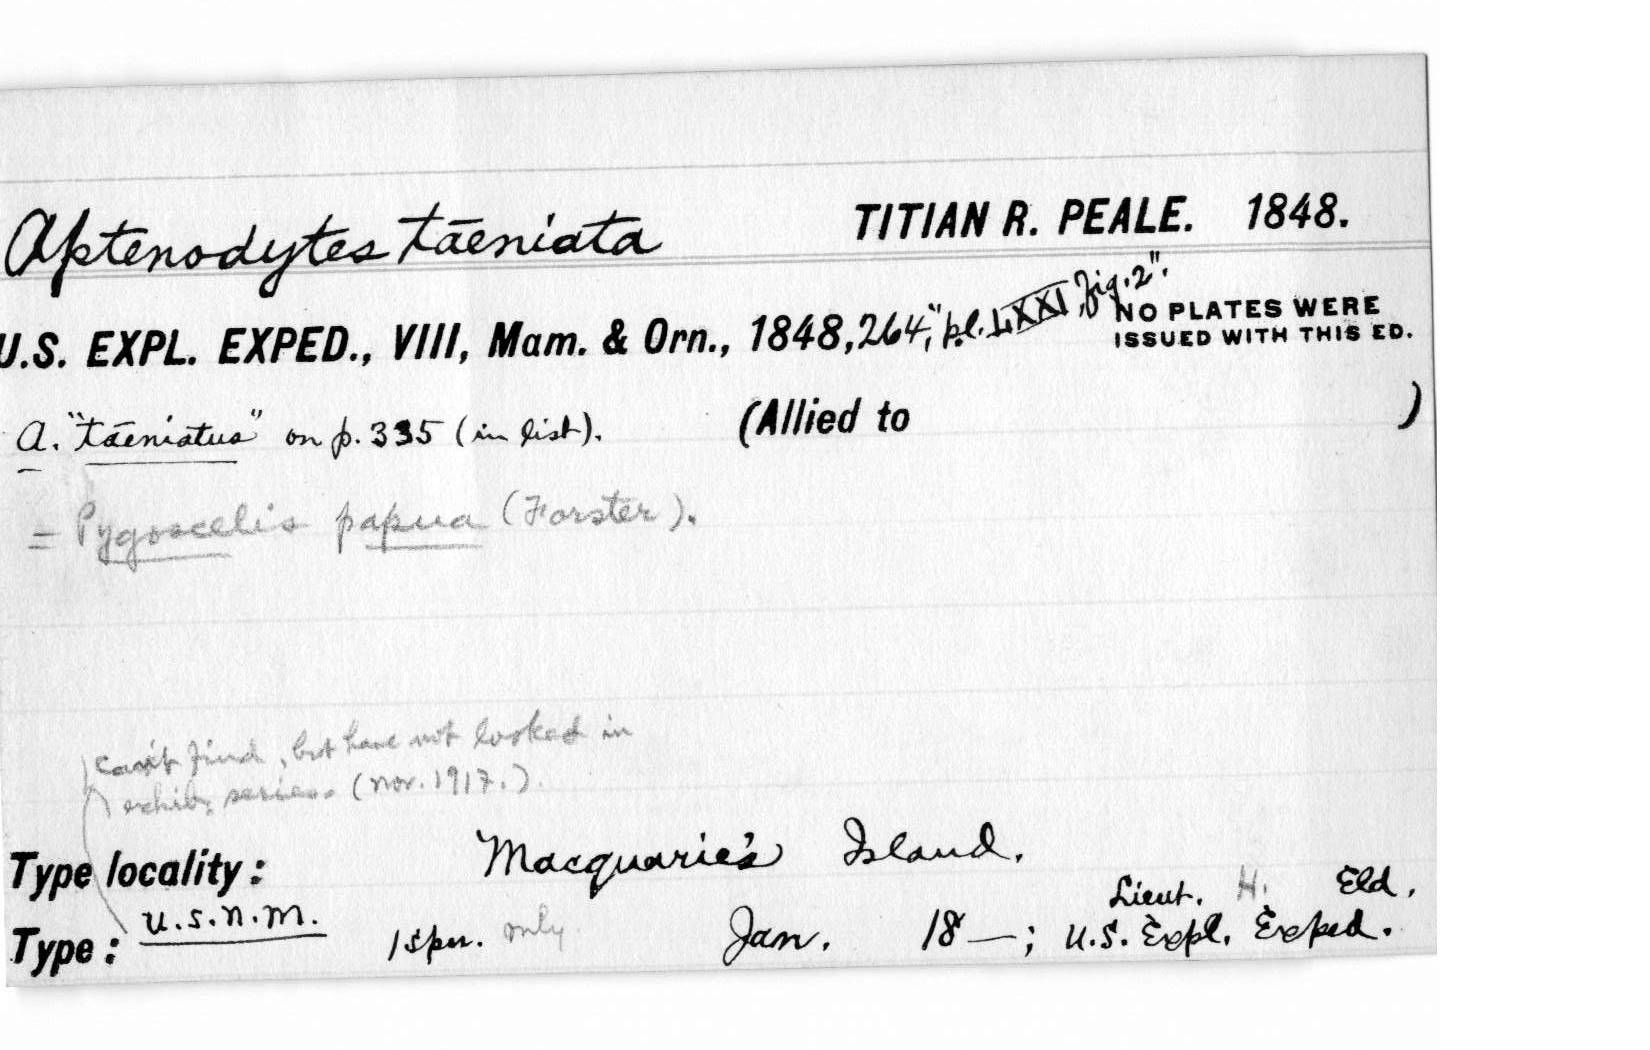 Aptenodytes tāeniata TITIAN R. PEALE. 1848.
U.S. EXPL. EXPED., VIII, Mam. & Orn., 1848, 264, "pl. LXXI, fig. 2". NO PLATES WERE
ISSUED WITH THIS ED.
A. "tāeniatus" on p. 335 (in list). (Allied to )
= Pygoscelis papua (Forster).
can't find, but have not looked in
exhib. series. (Nov. 1917.)
Type locality: Macquarie's Island.
Lieut. H. Eld.
Type: U.S.N.M. 1 spec. only. Jan. 18—; U.S. Expl. Exped.